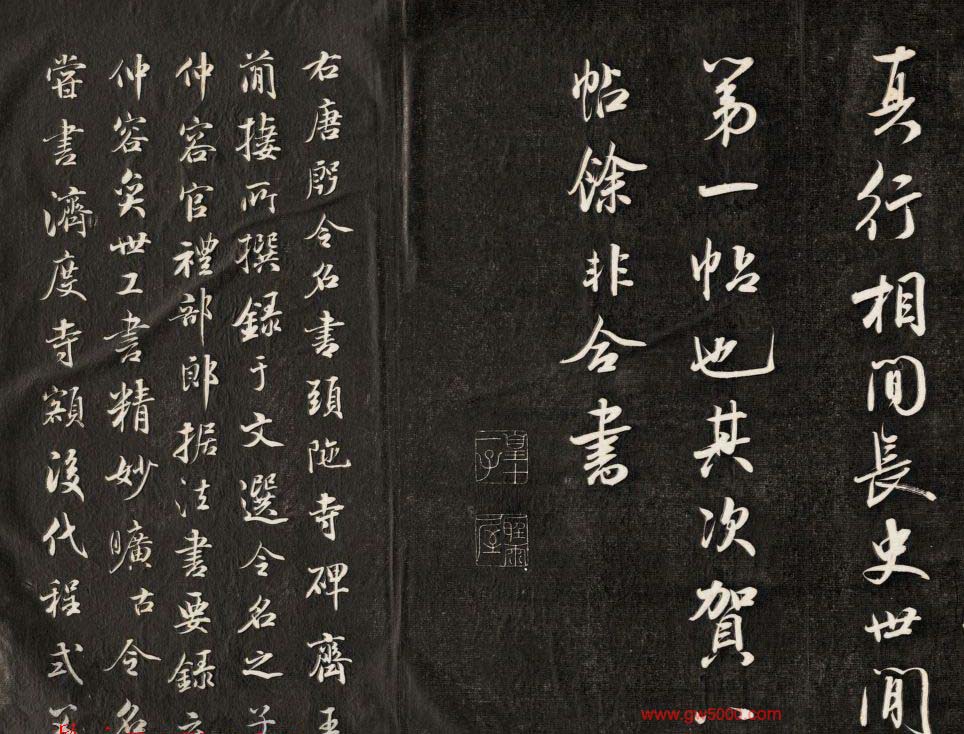 真行相間長史世間
第一帖也其次賀
帖餘非合書
皇十一子
聽雨屋
右唐殷令名書頭陁寺碑齊王
簡捿所撰録于文選令名之子
仲容官禮部郎据法書要録云
仲容奕世工書精妙曠古令名
嘗書濟度寺額後代程式
www.gw5000.com